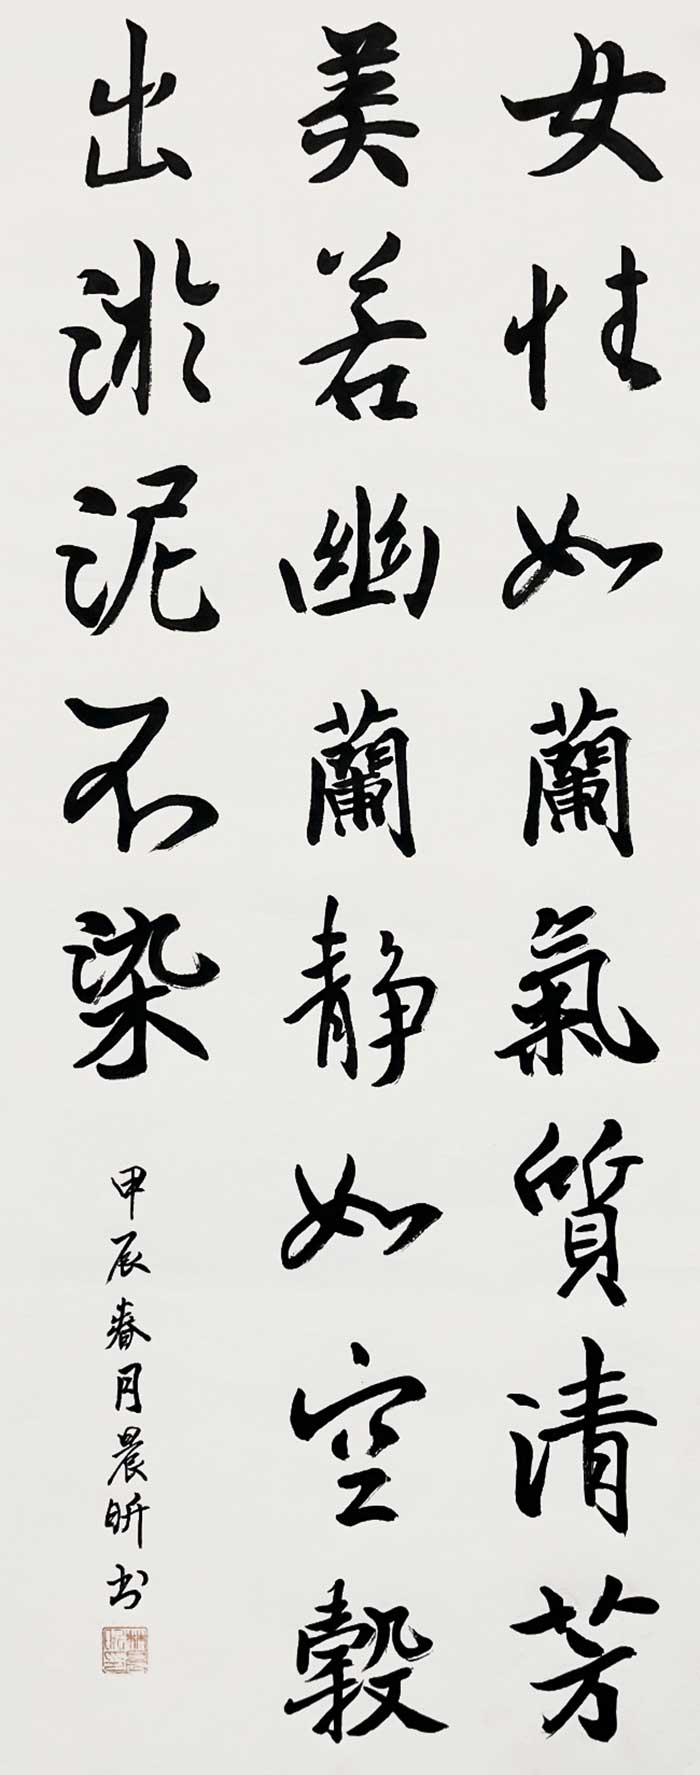 女性如蘭氣質清芳
美若幽蘭静如空穀
出淤泥不染
甲辰春月晨昕书